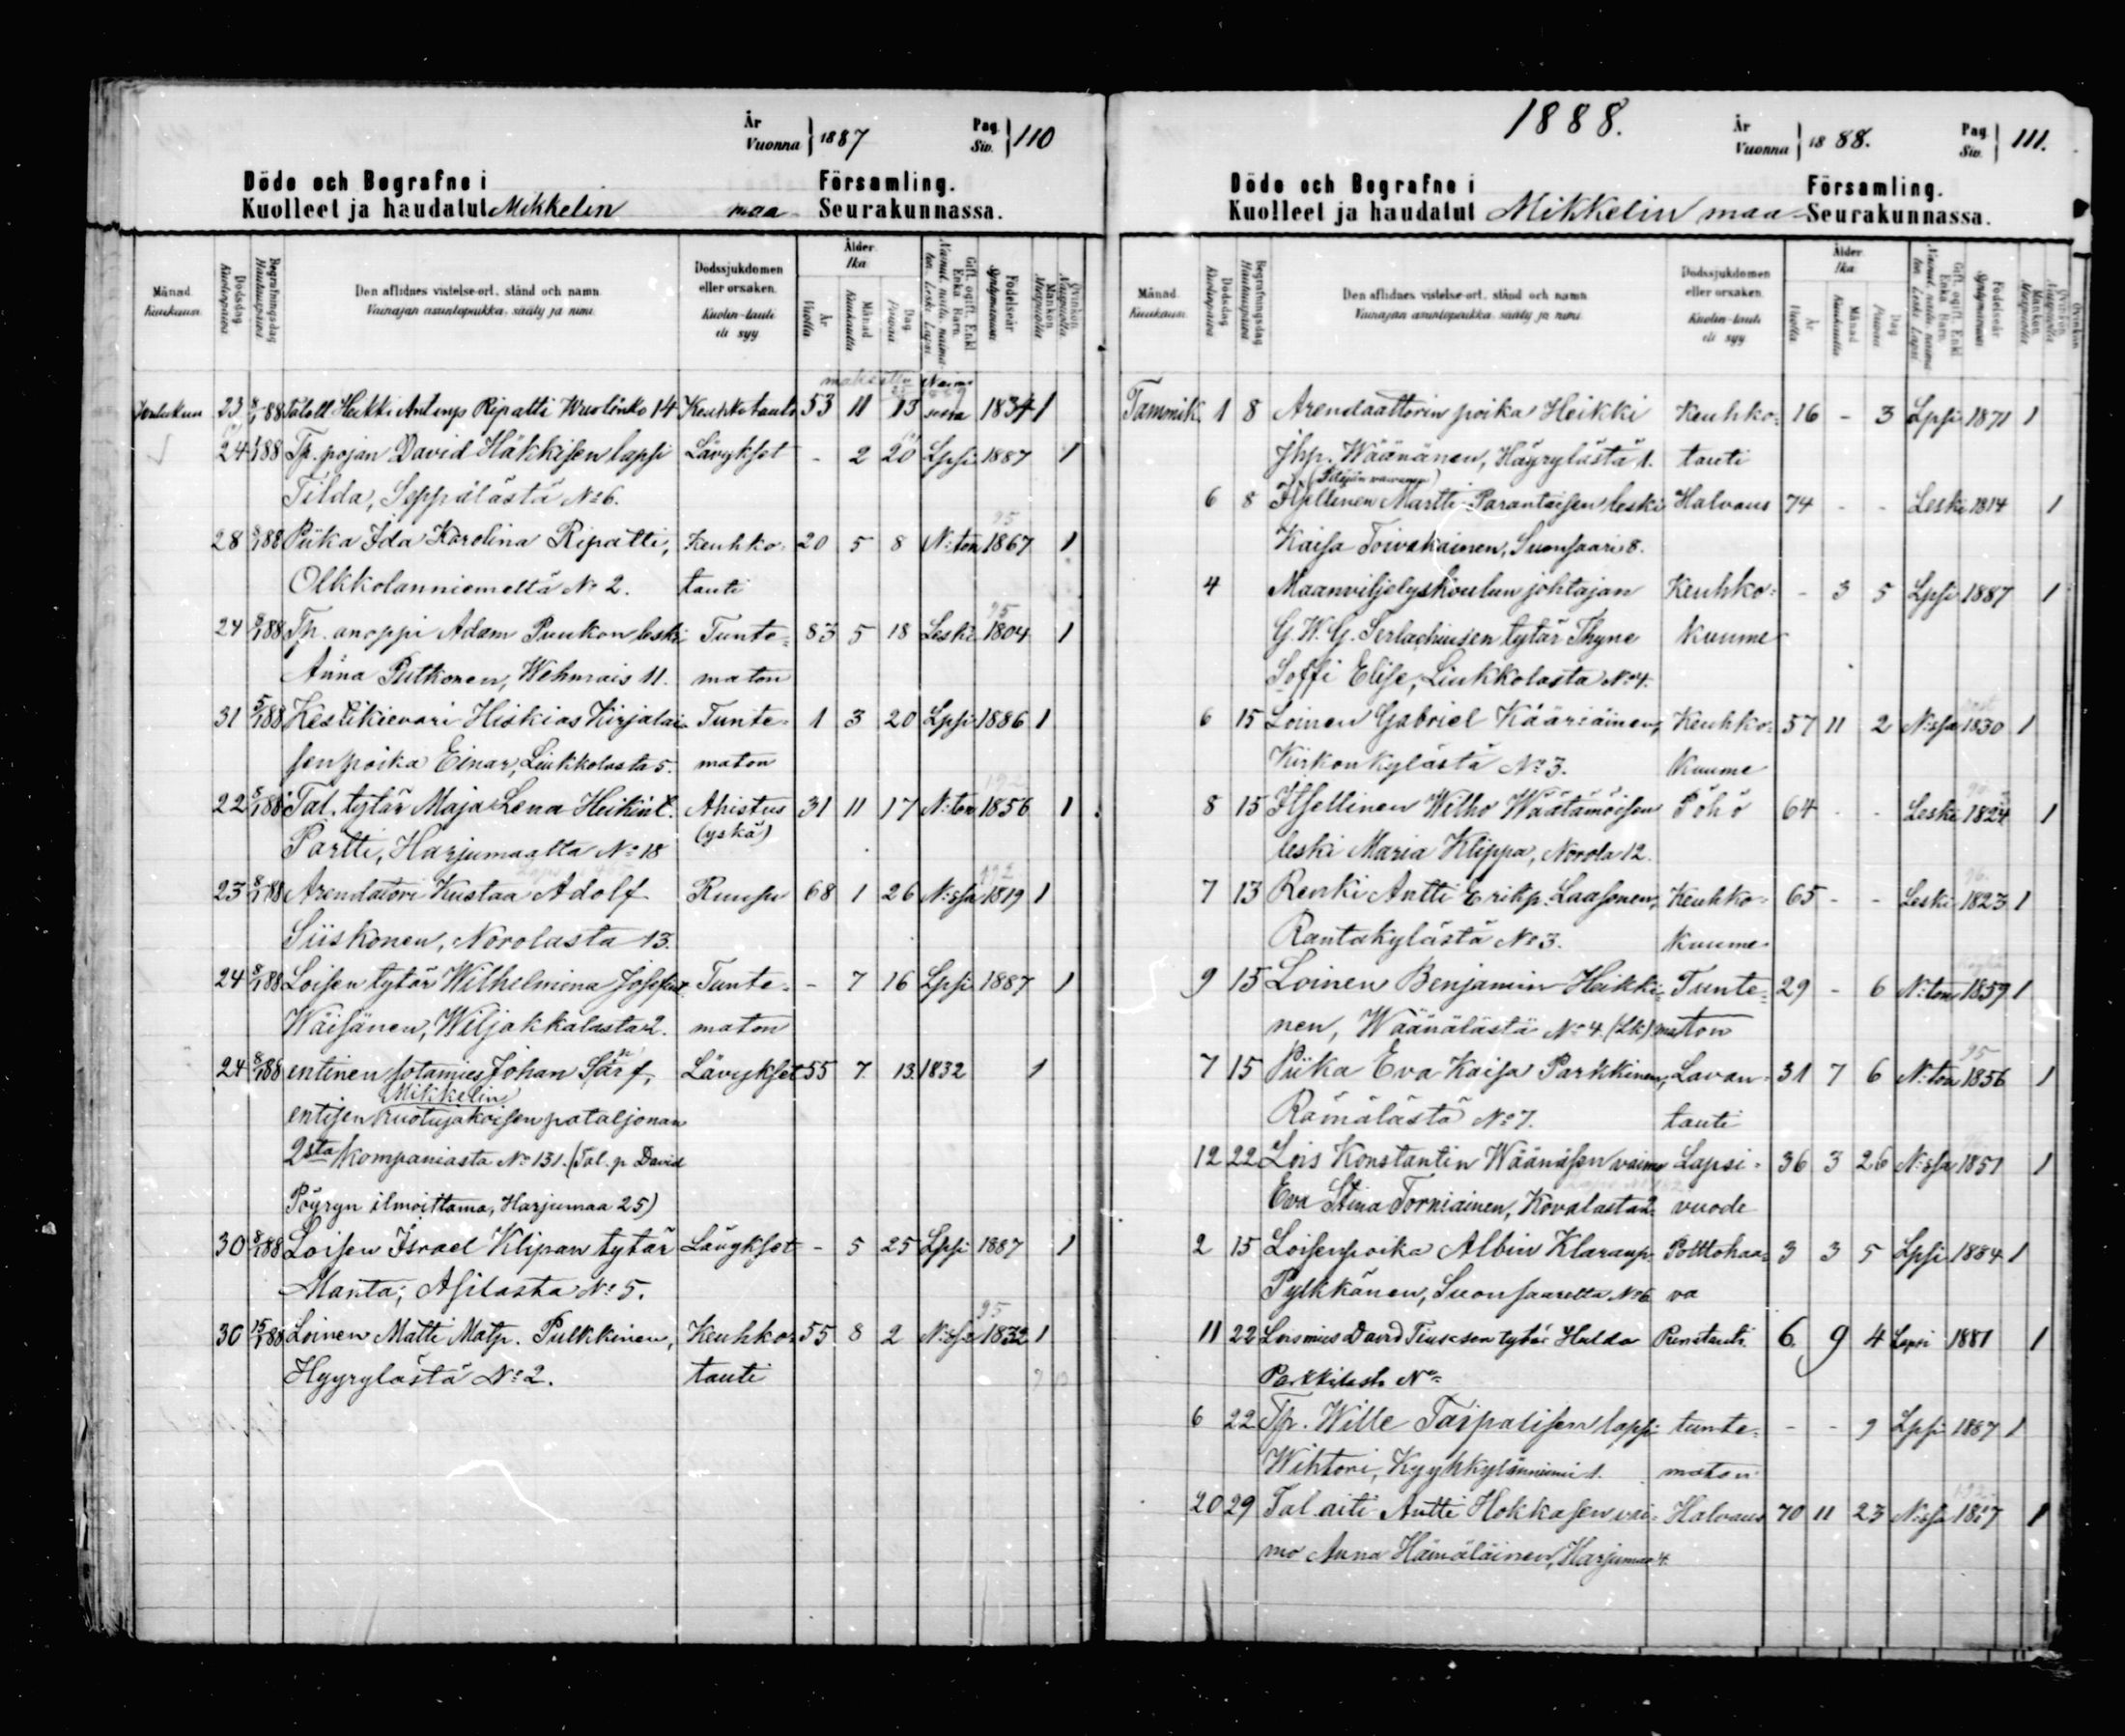 År
Vuonna 1887
Pag.
Siv. 110
Döde och Begrafne i Församling.
Kuolleet ja haudatut Mikkelin maa Seurakunnassa.
Månad. Kuukausi.
Dödsdag Kuolinpäivä
Begrafningsdag Hautauspäivä
Den aflidnes vistelse-ort, stånd och namn.
Vainajan asuntopaikka, sääty ja nimi.
Dödssjukdomen eller orsaken.
Kuolin-tauti eli syy.
Ålder. Ikä.
År Vuotta
Månad Kuukautta
Dag Päivää
Födelseår Syntymävuosi
Mankön Miespuolia
Qvinkön Naispuolia
Joulukuu 23 8/1 88 Taloll. Heikki Antinp. Ripatti 14 Keuhkotauti 53 11 13 1834 1
24 88 Tp. pojan David Häkkisen lapsi Lävykset - 2 20 Lpsi 1887 1
Tilda, Seppälästä No 6.
28 88 Piika Ida Karolina Ripatti, Keuhko- 20 5 8 N:ton 1867 1
Olkkolanniemeltä No 2. tauti
24 88 Tp. anoppi Adam Puukon leski Tunte- 83 5 18 Leski 1804 1
Anna Putkonen, Wehmais 11. maton
31 5/1 88 Kestikievari Hiskias Kirjalai- Tunte- 1 3 20 Lpsi 1886 1
sen poika Einar, Liukkolasta 5. maton
22 8/1 88 Tal. tytär Maja Lena Heikint. Ahistus 31 11 17 N:ton 1856 1
Partti, Harjumaalta No 18 (yskä)
23 8/1 88 Arendatori Kustaa Adolf Ruusu 68 1 26 N:ssa 1819 1
Siiskonen, Norolasta 13.
24 8/1 88 Loisen tytär Wilhelmina Josefint. Tunte- - 7 16 Lpsi 1887 1
Wäisänen, Wiljakkalasta 2. maton
24 8/1 88 entinen sotamies Johan Särf, Lävykset 55 7 13 1832 1
Mikkelin
entisen ruotujakoisen pataljonan
2sta kompaniasta No 131. (Tal. p. David
Pöyryn ilmoittama, Harjumaa 25)
30 8/1 88 Loisen Israel Klipan tytär Lävykset - 5 25 Lpsi 1887 1
Manta; Asilasta No 5.
30 15/1 88 Loinen Matti Matp. Pulkkinen, Keuhko- 55 8 2 N:ssa 1832 1
Hyyrylästä No 2. tauti
1888.
År
Vuonna 1888.
Pag.
Siv. 111.
Döde och Begrafne i Församling.
Kuolleet ja haudatut Mikkelin maa- Seurakunnassa.
Månad. Kuukausi.
Dödsdag Kuolinpäivä
Begrafningsdag Hautauspäivä
Den aflidnes vistelse-ort, stånd och namn.
Vainajan asuntopaikka, sääty ja nimi.
Dödssjukdomen eller orsaken.
Kuolin-tauti eli syy.
Ålder. Ikä.
År Vuotta
Månad Kuukautta
Dag Päivää
Födelseår Syntymävuosi
Mankön Miespuolia
Qvinkön Naispuolia
Tammik. 1 8 Arendaattorin poika Heikki Keuhko- 16 - 3 Lpsi 1871 1
Jhp. Wäänänen, Häyrylästä 1. tauti
6 8 Itsellinen Martti Parantaisen leski Halvaus 74 - - Leski 1814 1
Kaisa Toivakainen, Suonsaari 8.
4 Maanviljelyskoulun johtajan Keuhko- - 3 5 Lpsi 1887 1
G. W. G. Serlachiusen tytär Thyne kuume
Soffi Elise, Liukkolasta No 4.
6 15 Loinen Gabriel Kääriäinen, Keuhko- 57 11 2 N:ssa 1830 1
Kirkonkylästä No 3. kuume
8 15 Itsellinen Wilho Wäätämöisen Pöhö 64 - - Leski 1824 1
leski Maria Klippa, Norola 12.
7 13 Renki Antti Erikp. Laasonen, Keuhko- 65 - - Leski 1823 1
Rantakylästä No 3. kuume
9 15 Loinen Benjamin Heikki- Tunte- 29 - 6 N:ton 1859 1
nen, Wäänälästä No 4. (Lk) maton
7 15 Piika Eva Kaisa Parkkinen, Lavan- 31 7 6 N:ton 1856 1
Rämälästä No 7. tauti
12 22 Lois Konstantin Wäänäsen vaimo Lapsi- 36 3 26 N:ssa 1851 1
Eva Stina Torniainen, Kovalasta 2. vuode
2 15 Loisenpoika Albin Klaraup. Polttohaa- 3 3 5 Lpsi 1884 1
Pylkkänen, Suonsaarelta No 6 va
11 22 Loismies David Tiusesen tytär Hulda Punatauti 6 9 4 Lapsi 1881 1
Parkkilasta No
6 22 Tp. Wille Taipalisen lapsi tunte- - - 9 Lpsi 1887 1
Wihtori, Kyyhkylänniemi 1. maton
20 29 Tal. äiti Antti Hokkasen vai- Halvaus 70 11 23 N:ssa 1817 1
mo Anna Hämäläinen, Harjumaa 4.